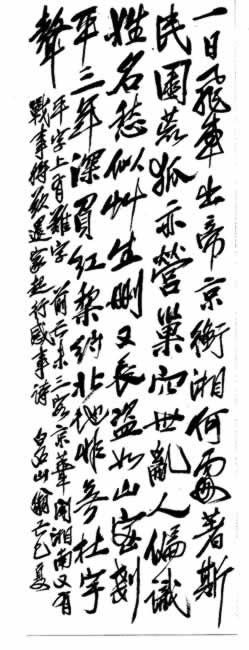 一日飛車出帝京衡湘何處著斯
民園荒狐亦營巢穴世亂人偏識
姓名愁似艸生刪又長盜如山密剗
平三年深負紅棃約北地非無杜宇
聲
平字上有難字 前己未三客京華聞湘南又有
戰事將欲還家起行感事詩 白石山翁己巳夏